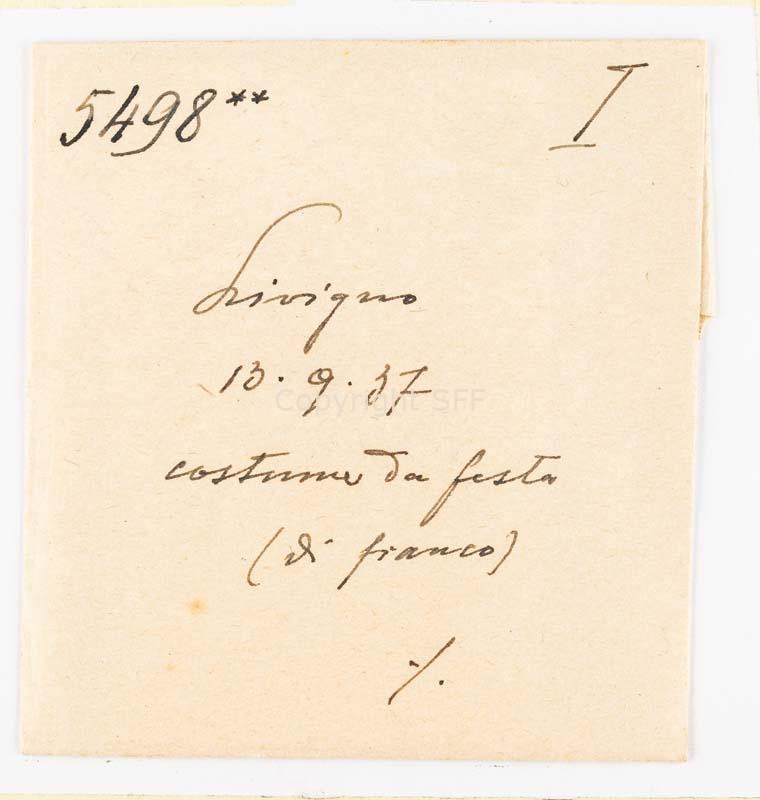 5498** I
Livigno
13.9.37
costume da festa
(di fianco)
./.
Copyright SFF